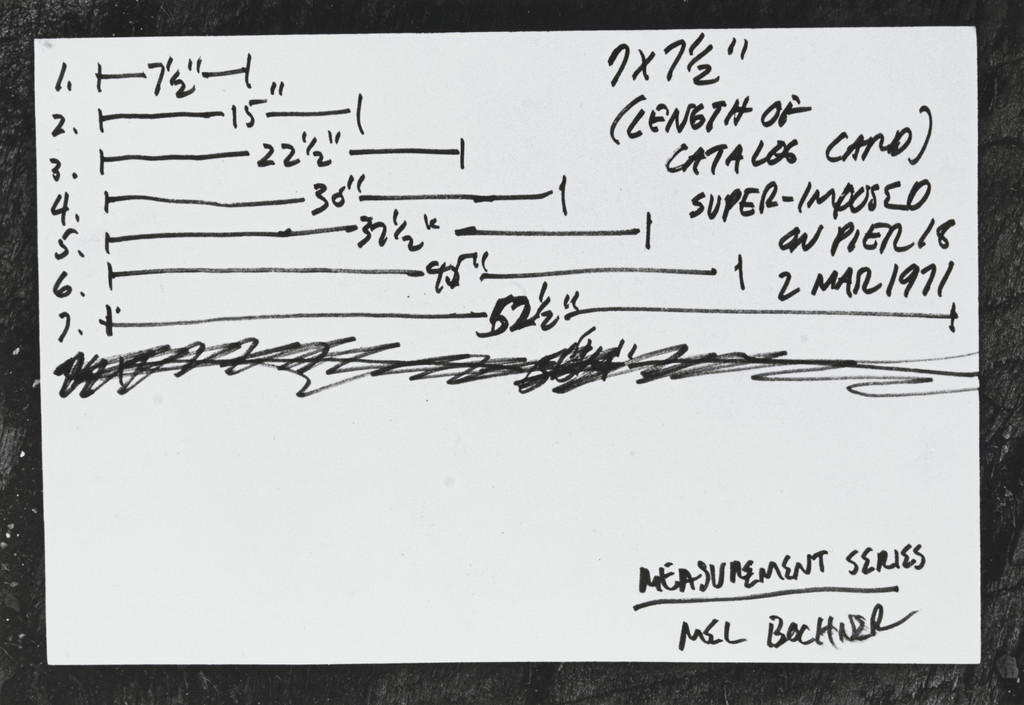 1. 7 1/2"
2. 15"
3. 22 1/2"
4. 30"
5. 37 1/2"
6. 45"
7. 52 1/2"
7 X 7 1/2"
(LENGTH OF
CATALOG CARD)
SUPER-IMPOSED
ON PIER 18
2 MAR 1971
MEASUREMENT SERIES
MEL BOCHNER